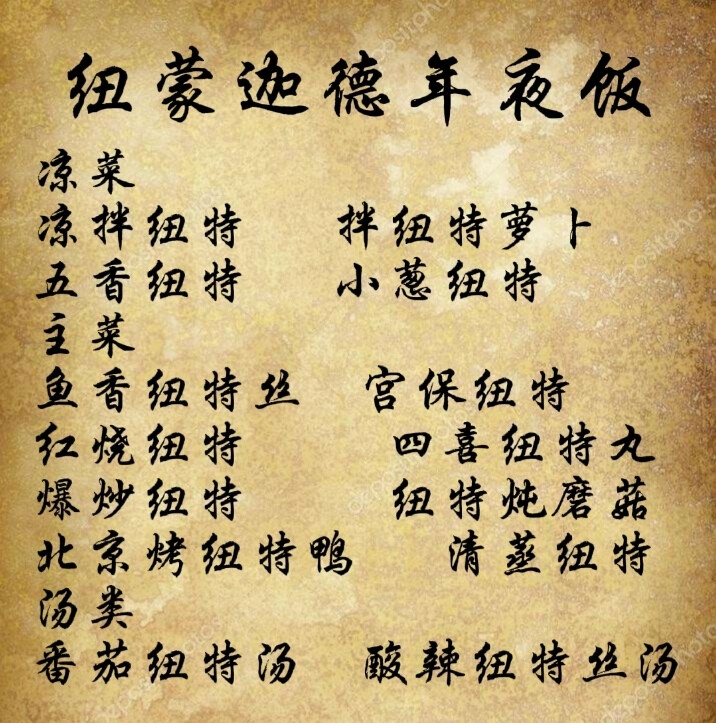 纽蒙迦德年夜饭
凉菜
凉拌纽特 拌纽特萝卜
五香纽特 小葱纽特
主菜
鱼香纽特丝 宫保纽特
红烧纽特 四喜纽特丸
爆炒纽特 纽特炖磨菇
北京烤纽特鸭 清蒸纽特
汤类
番茄纽特汤 酸辣纽特丝汤